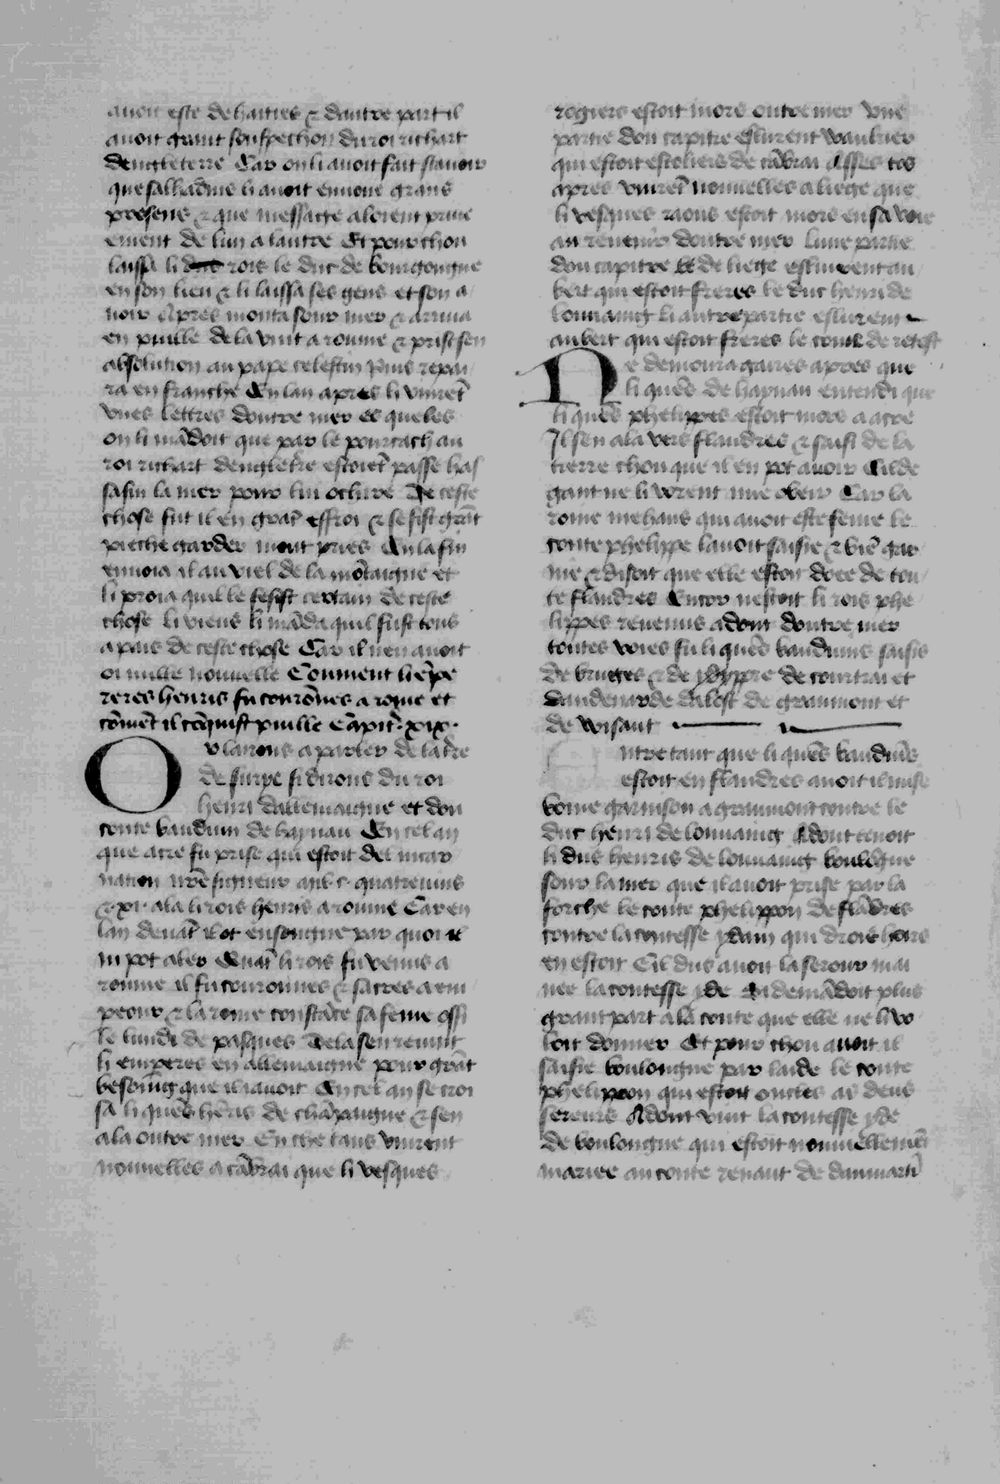 auoit este dehaities & dautre part il
auoit grant souspechon du roi richart
dengleterre Car on li auoit fait sauoir
que salhadins li auoit enuoie grans
presens & que messages aloient priue
ement de lun a lautre Et pour chou
laissa li rois le duc de bourgongne
en son lieu & li laissa ses gens et son a
uoir Apres monta sour mer & ariua
en puille de la vint a romme & prist sen
absolution au pape celestin Puis repai
ra en franche En lan apres li vinrēt
vnes lettres doutre mer es queles
on li mādoit que par le pourcach au
roi richart dengletre estoiēt passe has
sasin la mer pour lui ochirre De ceste
chose fut il en grāt effroi & se fist grāt
pieche garder mout pries En la fin
enuoia il au viel de la mōtaigne et
li proia quil le fesist certain de ceste
chose li viens li māda quil fust tous
a pais de ceste chose Car il nen auoit
oi nulle nouuelle Comment lēpe
reres henris fu courōnes a rome et
cōmēt il cōquist puille Capitē .xix.
Ov larons a parler de la tre
de surye si dirons du roi
henri dallemaigne et dou
conte bauduin de haynau En cel an
que acre fu prise qui estoit del incar
nation nrē signeur mil c quatreuins
& xi ala li rois henris a romme Car en
lan deuāt il ot ensoingne par quoi il
ni pot aler Quāt li rois fu venus a
romme il fu couronnes & sacres a em
peour & la roine constāce sa feme ossi
le lundi de pasques De la sen reuint
li emperes en allemaigne pour grāt
besoing que il i auoit En cel an se croi
sa li quēs hēris de chāpaigne & sen
ala outre mer En che tans vinrent
nouuelles a cābrai que li vesques
rogiers estoit mors outre mer Vne
partie dou capitre eslurent waubier
qui estoit escoliers de cābrai Asses tos
apres vinrēt nouuelles a liege que
li vesques raous estoit mors en sa voie
au reuenir doutre mer Lune partie
dou capitre de liege eslurent au
bert qui estoit freres le duc henri de
louuaing li autre partie eslurent
aubert qui estoit freres le conte de retest
Ne demoura gaires apres que
li quēs de haynau entendi que
li quēs phelippes estoit mors a acre
Il sen ala vers flandres & saisi de la
tierre chou que il en pot auoir Cil de
gant ne li vorent mie obeir Car la
roine mehaus qui auoit este feme le
conte phelippe lauoit saisie & biē gar
nie & disoit que elle estoit doee de tou
te flandres Encor nestoit li rois phe
lippes reuenus adont doutre mer
toutes voies fu li quēs bauduins saisis
de bruges & de yppre de courtrai et
daudenarde dalost de granmont et
de wisant
Entretant que li quēs bauduīs
estoit en flandres auoit il mise
boine garnison a granmont contre le
duc henri de louuaing Adont tenoit
li dus henris de louuaing boulogne
sour la mer que il auoit prise par la
forche le conte phelippon de flādres
contre la contesse ydain qui droit hoirs
en estoit Cil dus auoit la serour mai
nee la contesse yde Si demādoit plus
grant part a la conte que elle ne li vo
loit donner Et pour chou auoit il
saisie boulongne par laide le conte
phelippon qui estoit oncles as deus
sereurs Adont vint la contesse yde
de boulongne qui estoit nouuellemēt
mariee au conte renaut de danmartī